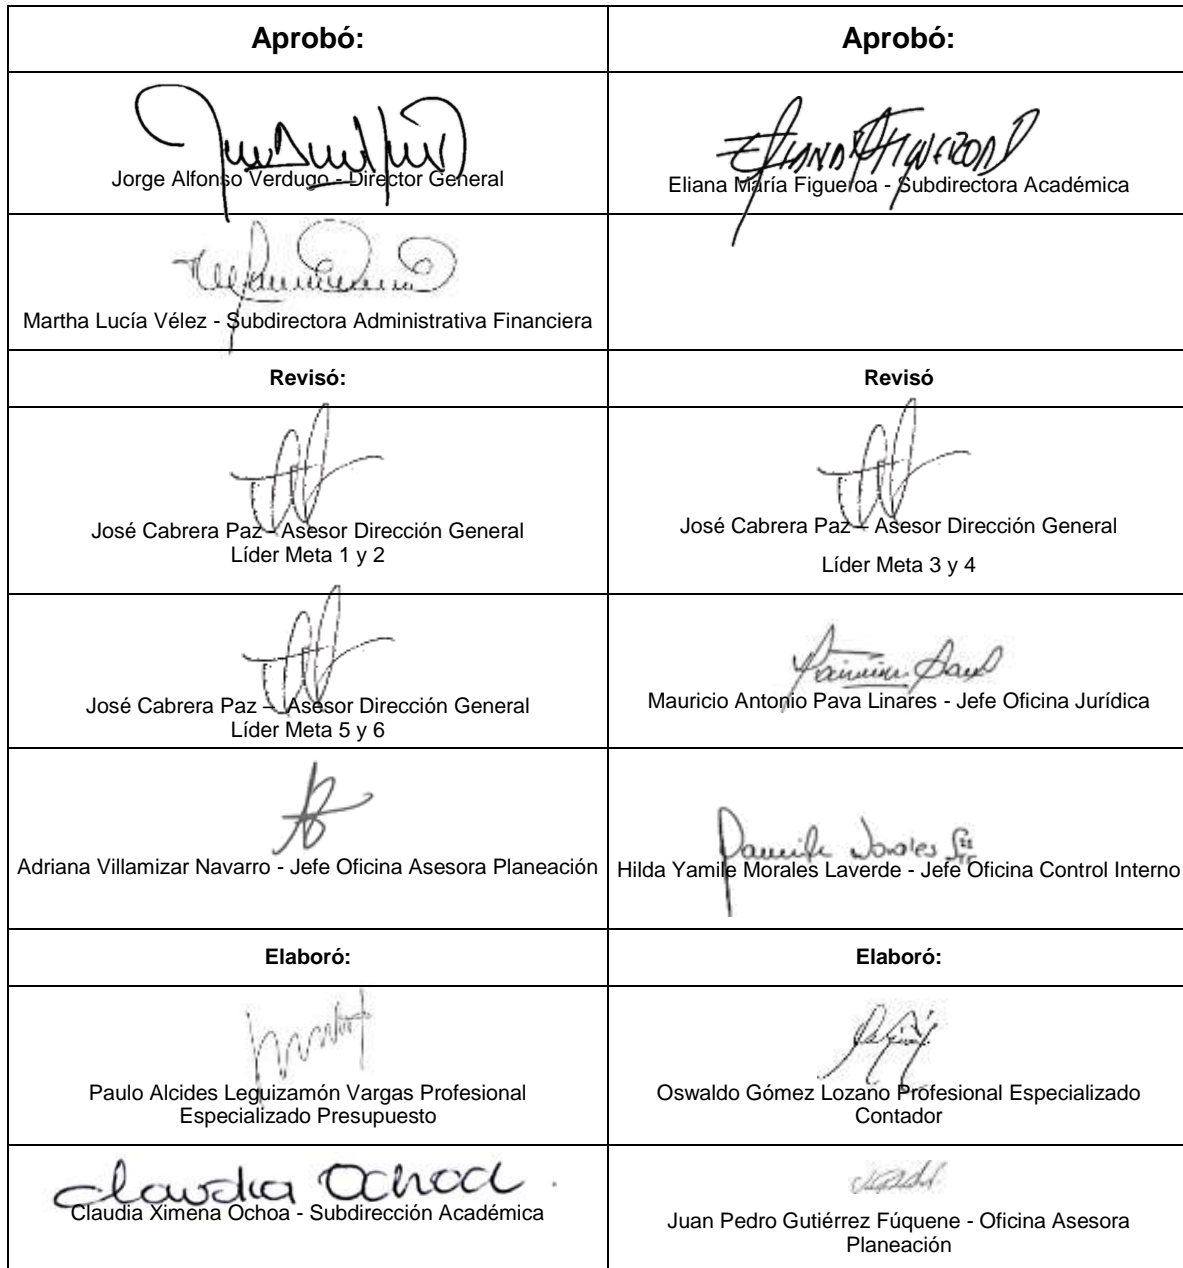 Aprobó:
Aprobó:
Jorge Alfonso Verdugo - Director General
Eliana María Figueroa - Subdirectora Académica
Martha Lucía Vélez - Subdirectora Administrativa Financiera
Revisó:
Revisó
José Cabrera Paz – Asesor Dirección General
Líder Meta 1 y 2
José Cabrera Paz – Asesor Dirección General
Líder Meta 3 y 4
José Cabrera Paz – Asesor Dirección General
Líder Meta 5 y 6
Mauricio Antonio Pava Linares - Jefe Oficina Jurídica
Adriana Villamizar Navarro - Jefe Oficina Asesora Planeación
Yamile Morales
Hilda Yamile Morales Laverde - Jefe Oficina Control Interno
Elaboró:
Elaboró:
Paulo Alcides Leguizamón Vargas Profesional
Especializado Presupuesto
Oswaldo Gómez Lozano Profesional Especializado
Contador
Claudia Ochoa.
Claudia Ximena Ochoa - Subdirección Académica
Juan Pedro Gutiérrez Fúquene - Oficina Asesora
Planeación